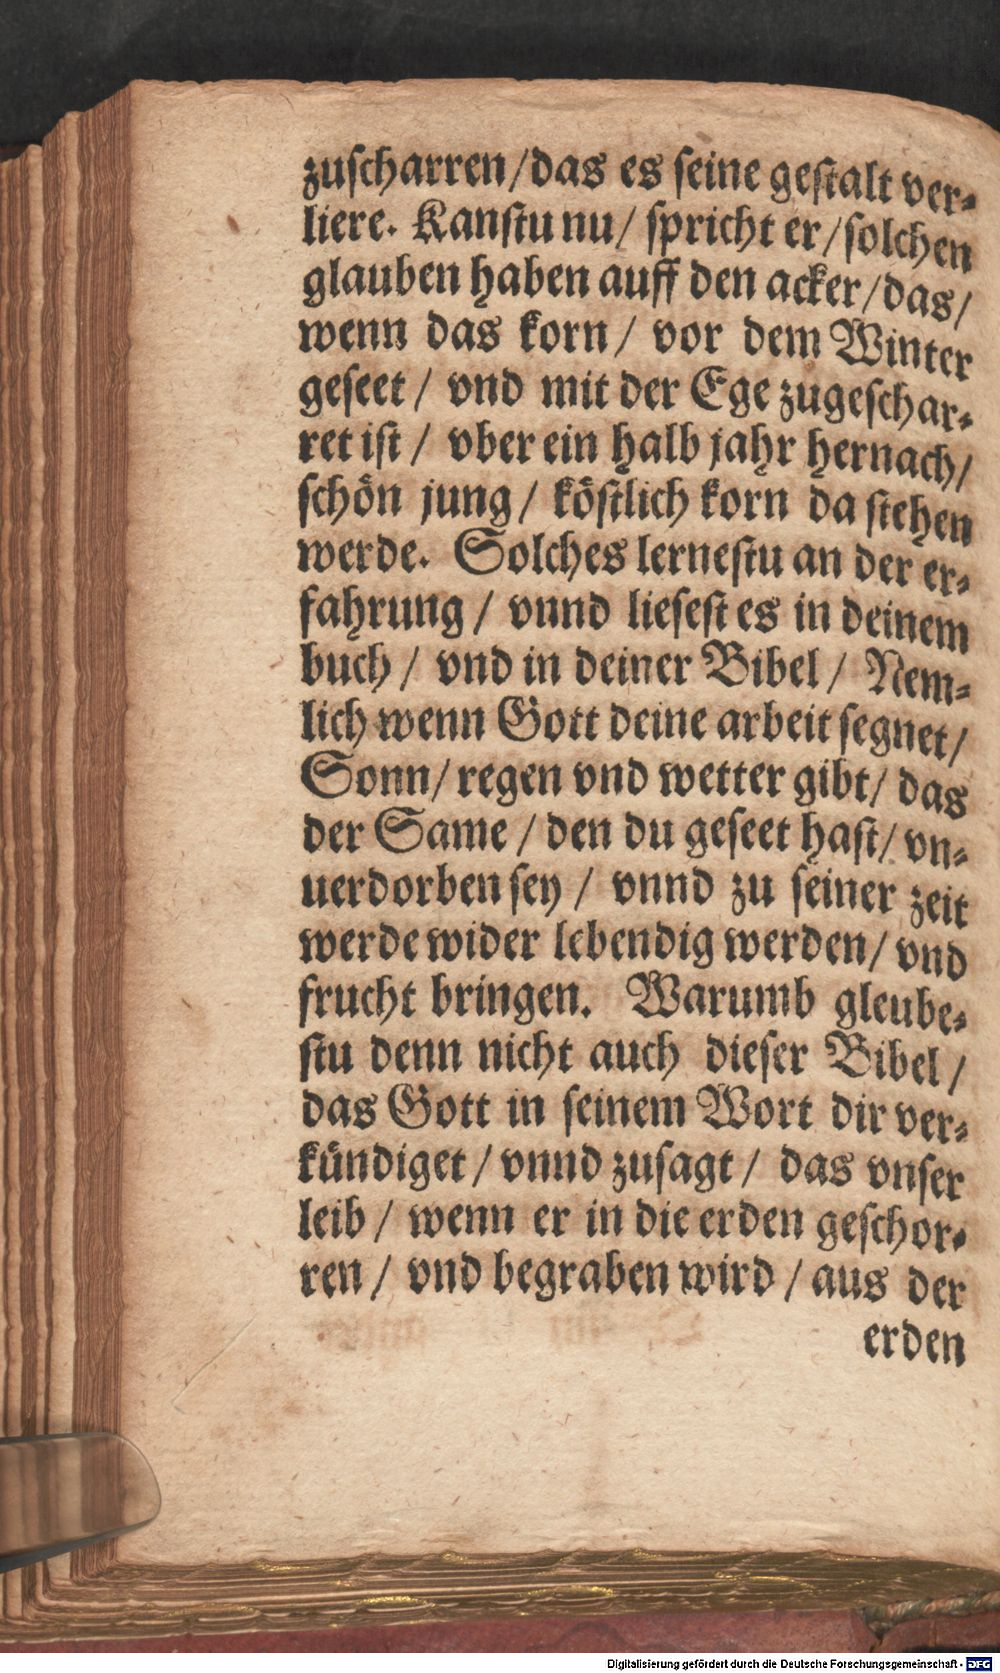 zuſcharren/das es ſeine geſtalt ver-
liere. Kanſtu nu/ ſpricht er/ſolchen
glauben haben auff den acker/das/
wenn das korn/ vor dem Winter
geſeet/ vnd mit der Ege zugeſchar-
ret iſt/ vber ein halb jahr hernach/
ſchön jung/ köſtlich korn da ſtehen
werde. Solches lerneſtu an der er-
fahrung/ vnnd lieſeſt es in deinem
buch/ vnd in deiner Bibel/ Nem-
lich wenn Gott deine arbeit ſegnet/
Sonn/ regen vnd wetter gibt/ das
der Same/ den du geſeet haſt/ vn-
uerdorben ſey/ vnnd zu ſeiner zeit
werde wider lebendig werden/ vnd
frucht bringen. Warumb gleube-
ſtu denn nicht auch dieſer Bibel/
das Gott in ſeinem Wort dir ver-
kündiget/ vnnd zuſagt/ das vnſer
leib/ wenn er in die erden geſchor-
ren/ vnd begraben wird/ aus der
erden
Digitalisierung gefördert durch die Deutsche Forschungsgemeinschaft - DFG